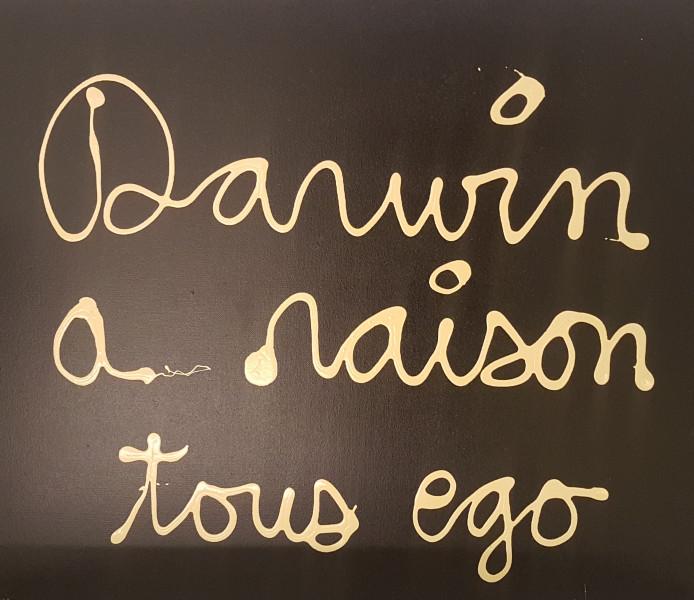 Darwin
a raison
tous ego